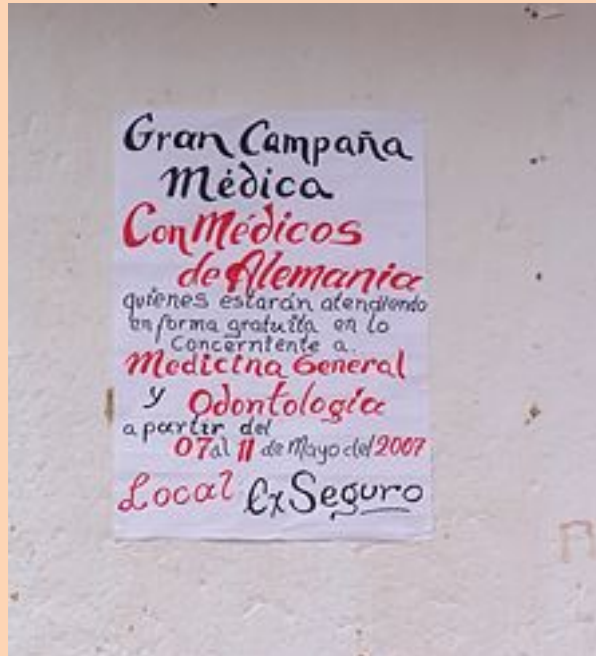 Gran Campaña
Médica
Con Médicos
de Alemania
quienes estarán atendiendo
en forma gratuita en lo
concerniente a
Medicina General
y Odontología
a partir del
07 al 11 de Mayo del 2007
Local Ex Seguro